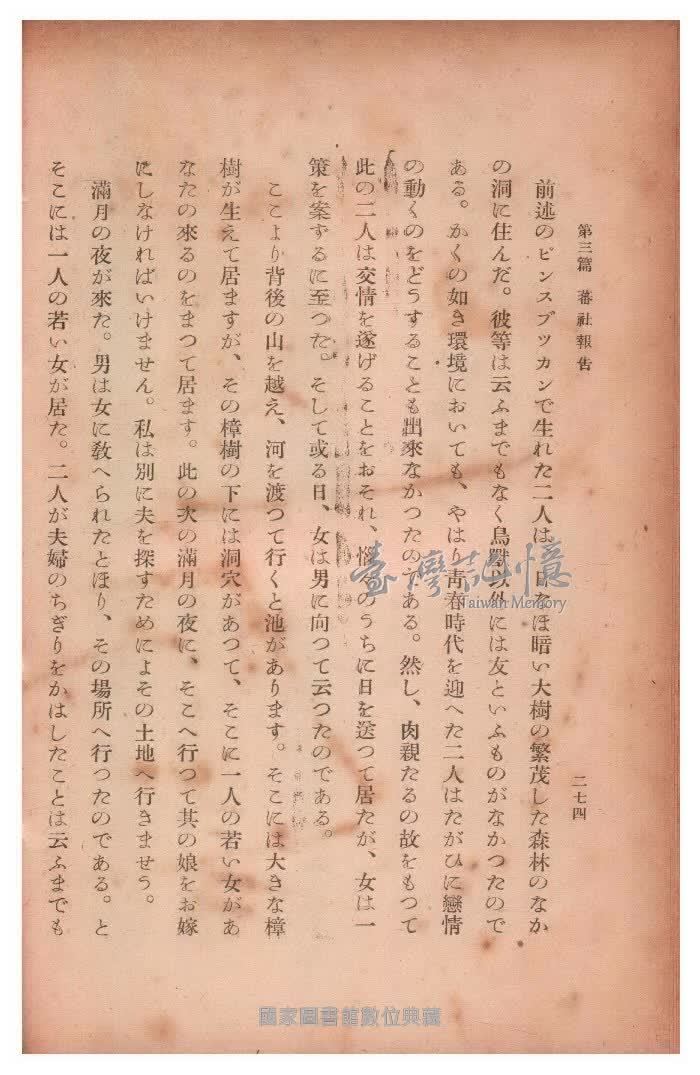 第三篇 蕃社報告
二七四
前述のピンスブツカンで生れた二人は、日なほ暗い大樹の繁茂した森林のなか
の洞に住んだ。彼等は云ふまでもなく鳥獸以外には友といふものがなかつたので
ある。かくの如き環境においても、やはり靑春時代を迎へた二人はたがひに戀情
の動くのをどうすることも出來なかつたのである。然し、肉親たるの故をもつて
此の二人は交情を遂げることをおそれ、惱みのうちに日を送つて居たが、女は一
策を案ずるに至つた。そして或る日、女は男に向つて云つたのである。
ここより背後の山を越え、河を渡つて行くと池があります。そこには大きな樟
樹が生えて居ますが、その樟樹の下には洞穴があつて、そこに一人の若い女があ
なたの來るのをまつて居ます。此の次の滿月の夜に、そこへ行つて其の娘をお嫁
にしなければいけません。私は別に夫を探すためによその土地へ行きませう。
滿月の夜が來た。男は女に敎へられたとほり、その場所へ行つたのである。と
そこには一人の若い女が居た。二人が夫婦のちぎりをかはしたことは云ふまでも
臺灣記憶
Taiwan Memory
國家圖書館數位典藏